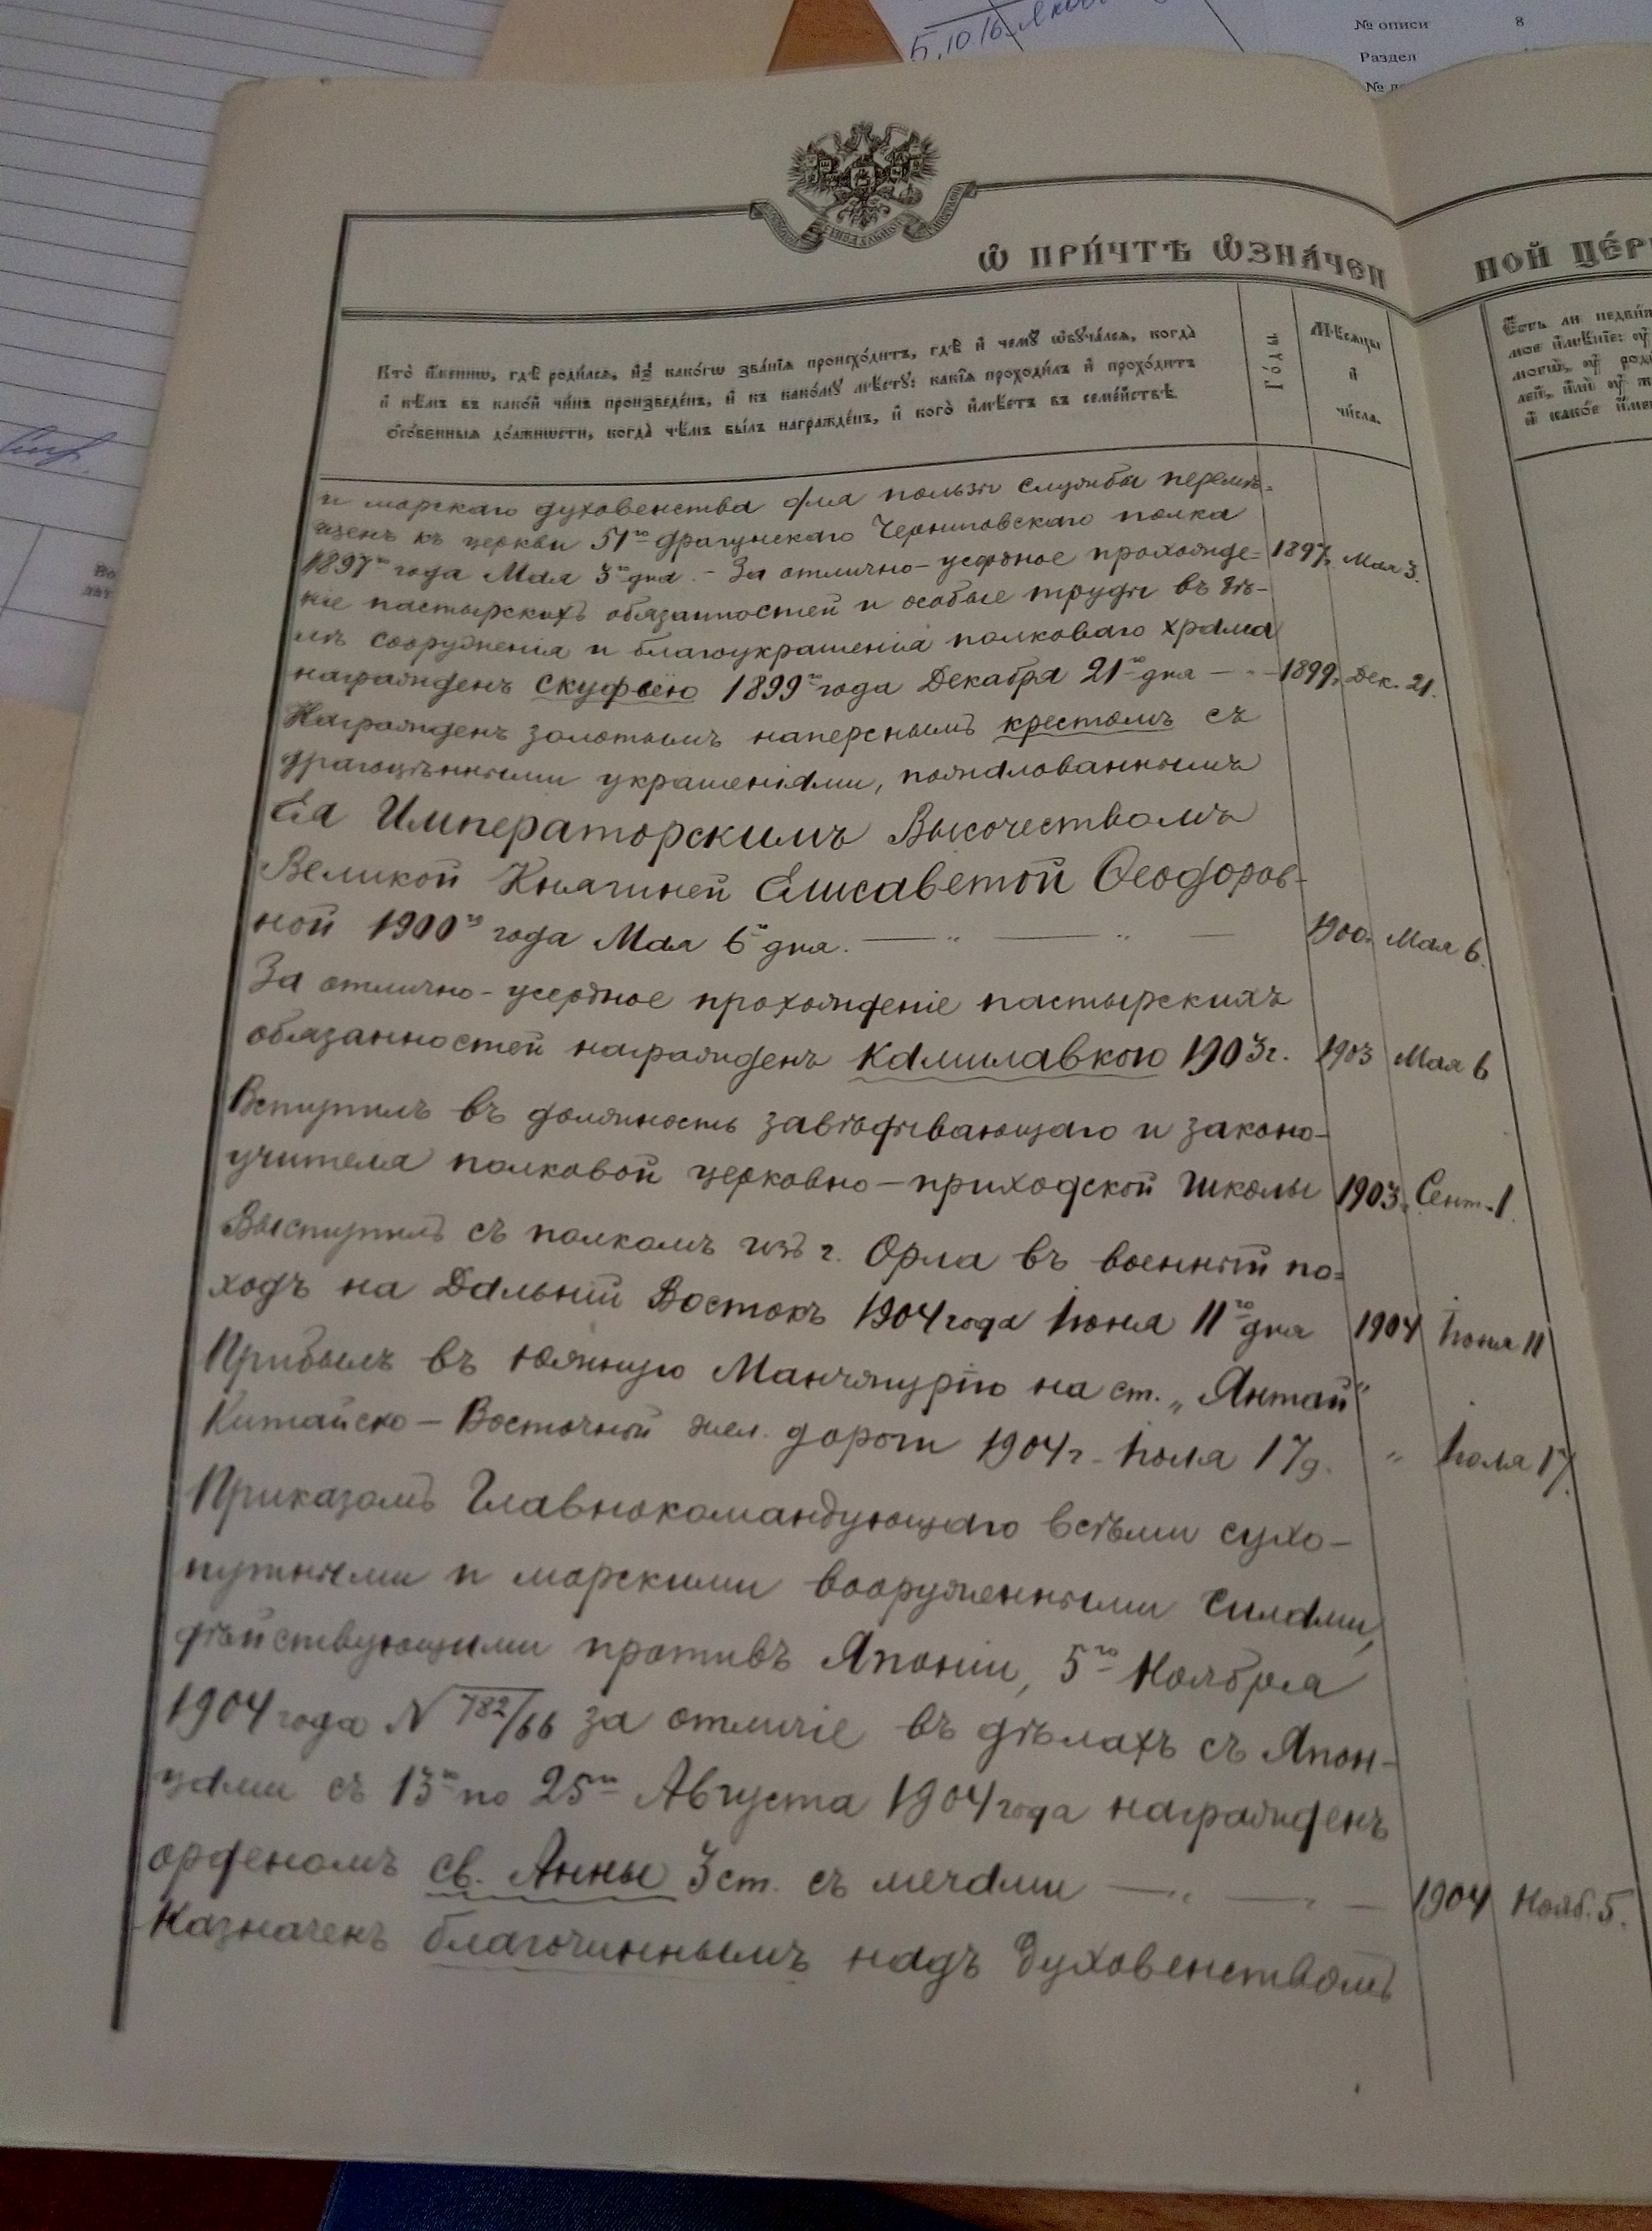 5.10.16
№ описи 8
Раздел
Ѡ ПРИ́ЧТѢ Ѡ҆ЗНА́ЧЕН
НОЙ ЦЕ́Р
Кто̀ и҆́менно, гдѣ̀ роди́лсѧ, и҆з̾ како́гѡ зва́нїѧ происхо́дитъ, гдѣ̀ и҆ чемꙋ̀ ѡ҆бꙋча́лсѧ, когда̀
и҆ кѣ́мъ въ како́й чи́нъ произведе́нъ, и҆ къ како́мꙋ мѣ́стꙋ: какі̑ѧ проходи́лъ и҆ прохо́дитъ
ѻ҆со́бенныѧ до́лжности, когда̀ чѣ́мъ бы́лъ награжде́нъ, и҆ кого̀ и҆мѣ́етъ въ семе́йствѣ.
Го́ды
Мѣ́сѧцы
и҆
чи́сла.
и морскаго духовенства для пользы службы перемѣ-
щенъ къ церкви 51го драгунскаго Черниговскаго полка
1897го года Мая 3го дня. – За отлично-усердное прохожде- 1897г. Мая 3.
ніе пастырскихъ обязанностей и особые труды въ дѣ-
лѣ сооруженія и благоукрашенія полковаго храма
награжденъ скуфьёю 1899го года Декабря 21го дня – 1899г. Дек. 21.
Награжденъ золотымъ наперснымъ крестомъ съ
драгоцѣнными украшеніями, пожалованнымъ
Ея Императорскимъ Высочествомъ
Великой Княгиней Елисаветой Ѳеодоров-
ной 1900го года Мая 6го дня. — „ — „ — 1900г. Мая 6.
За отлично-усердное прохожденіе пастырскихъ
обязанностей награжденъ камилавкою 1903г. 1903 Мая 6
Вступилъ въ должность завѣдывающаго и законо-
учителя полковой церковно-приходской школы 1903г. Сент. 1.
Выступилъ съ полкомъ изъ г. Орла въ военный по-
ходъ на Дальній Востокъ 1904 года Іюня 11го дня 1904 Іюня 11
Прибылъ въ Южную Манчжурію на ст. „Янтай"
Китайско-Восточной жел. дороги 1904 г. Іюля 17 д. „ Іюля 17.
Приказомъ Главнокомандующаго всѣми сухо-
путными и морскими вооруженными силами,
дѣйствующими противъ Японіи, 5го Ноября
1904 года N 782/66 за отличіе въ дѣлахъ съ Япон-
цами съ 13го по 25го Августа 1904 года награжденъ
орденомъ св. Анны 3 ст. съ мечами — „ — „ — 1904 Нояб. 5.
Назначенъ благочиннымъ надъ духовенствомъ